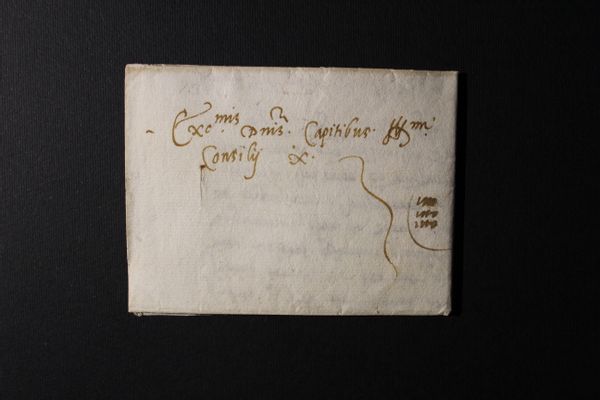 Exc.mis Dnis. Capitibus. Ill.mi
Consilij X.